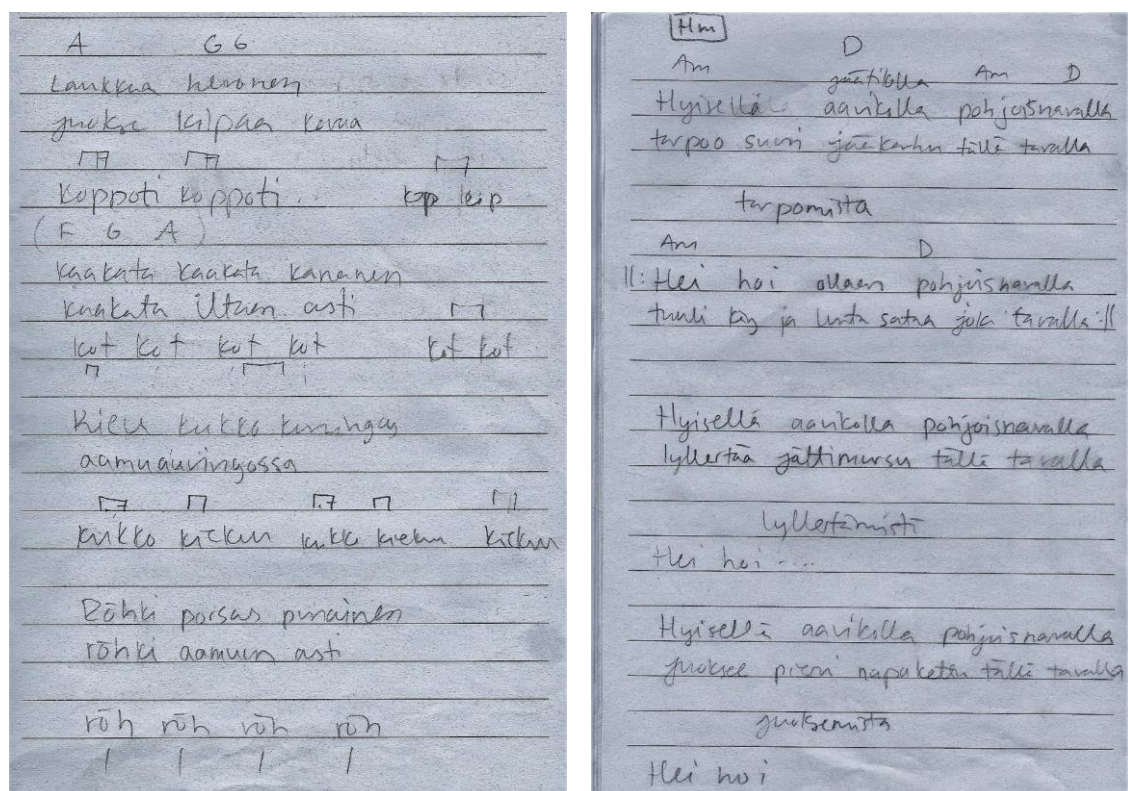 A G6
Laukkaa hevonen
juokse kilpaa kovaa
Koppoti koppoti kop kop
(F G A)
Kaakata kaakata kananen
kaakata iltaan asti
kot kot kot kot kot kot
Kieu kukko kuningas
aamuauringossa
kukko kiekuu kukko kiekuu kiekuu
Röhki porsas punainen
röhki aamuun asti
röh röh röh röh
Hm
Am D Am D
jäätiköllä
Hyisellä aavikolla pohjoisnavalla
tarpoo suuri jääkarhu tällä tavalla
tarpomista
Am D
||: Hei hoi ollaan pohjoisnavalla
tuuli käy ja lunta sataa joka tavalla :||
Hyisellä aavikolla pohjoisnavalla
lyllertää jättimursu tällä tavalla
lyllertämistä
Hei hoi ....
Hyisellä aavikolla pohjoisnavalla
juoksee pieni napakettu tällä tavalla
juoksemista
Hei hoi